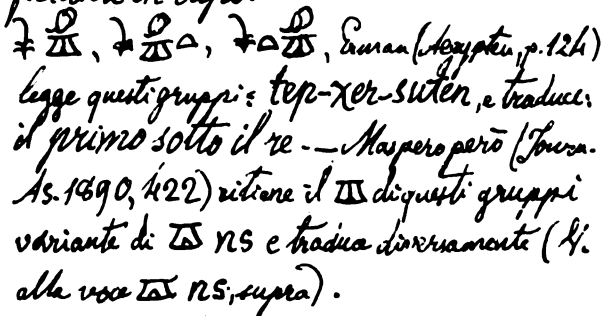 , , , Erman (Aegypten, p. 124)
legge questi gruppi: tep-χer-suten, e traduce:
il primo sotto il re. — Maspero però (Journ.
As. 1890, 422) ritiene il di questi gruppi
variante di ns e traduce diversamente (V.
alla voce ns, supra).